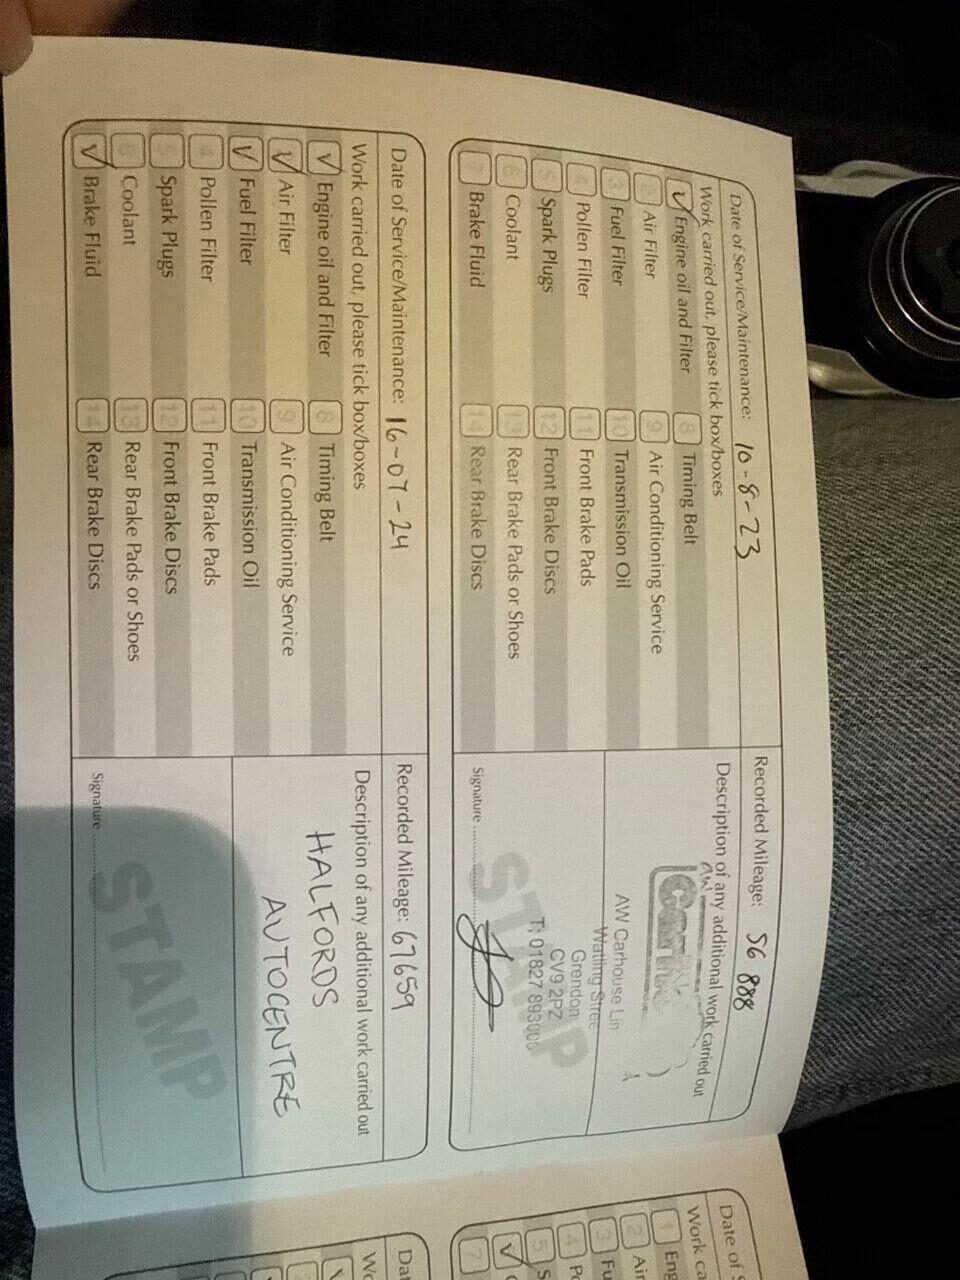 Date of Service/Maintenance: 10-8-23
Recorded Mileage: 56 888
Work carried out, please tick box/boxes
Description of any additional work carried out
Engine oil and Filter
8 Timing Belt
2 Air Filter
9 Air Conditioning Service
3 Fuel Filter
10 Transmission Oil
4 Pollen Filter
11 Front Brake Pads
5 Spark Plugs
12 Front Brake Discs
6 Coolant
13 Rear Brake Pads or Shoes
7 Brake Fluid
14 Rear Brake Discs
AW Carhouse
Watling
Grendon
CV9 2PZ
T: 01827 893000
STAMP
Signature
Date of Service/Maintenance: 16-07-24
Recorded Mileage: 67659
Work carried out, please tick box/boxes
Description of any additional work carried out
Engine oil and Filter
8 Timing Belt
Air Filter
9 Air Conditioning Service
Fuel Filter
10 Transmission Oil
4 Pollen Filter
11 Front Brake Pads
5 Spark Plugs
12 Front Brake Discs
6 Coolant
13 Rear Brake Pads or Shoes
Brake Fluid
14 Rear Brake Discs
HALFORDS
AUTOCENTRE
STAMP
Signature
Date of S
Work ca
1 Eng
2 Air
3 Fu
4 Po
5 S
C
7
Dat
Wo